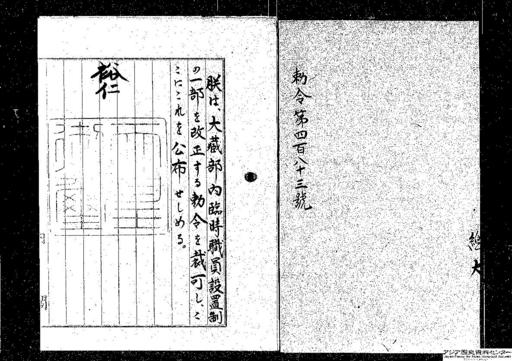 勅令第四百八十三號
朕は、大藏部內臨時職員設置制
の一部を改正する勅令を裁可し、こ
こにこれを公布せしめる。
裕仁
アジア歴史資料センター